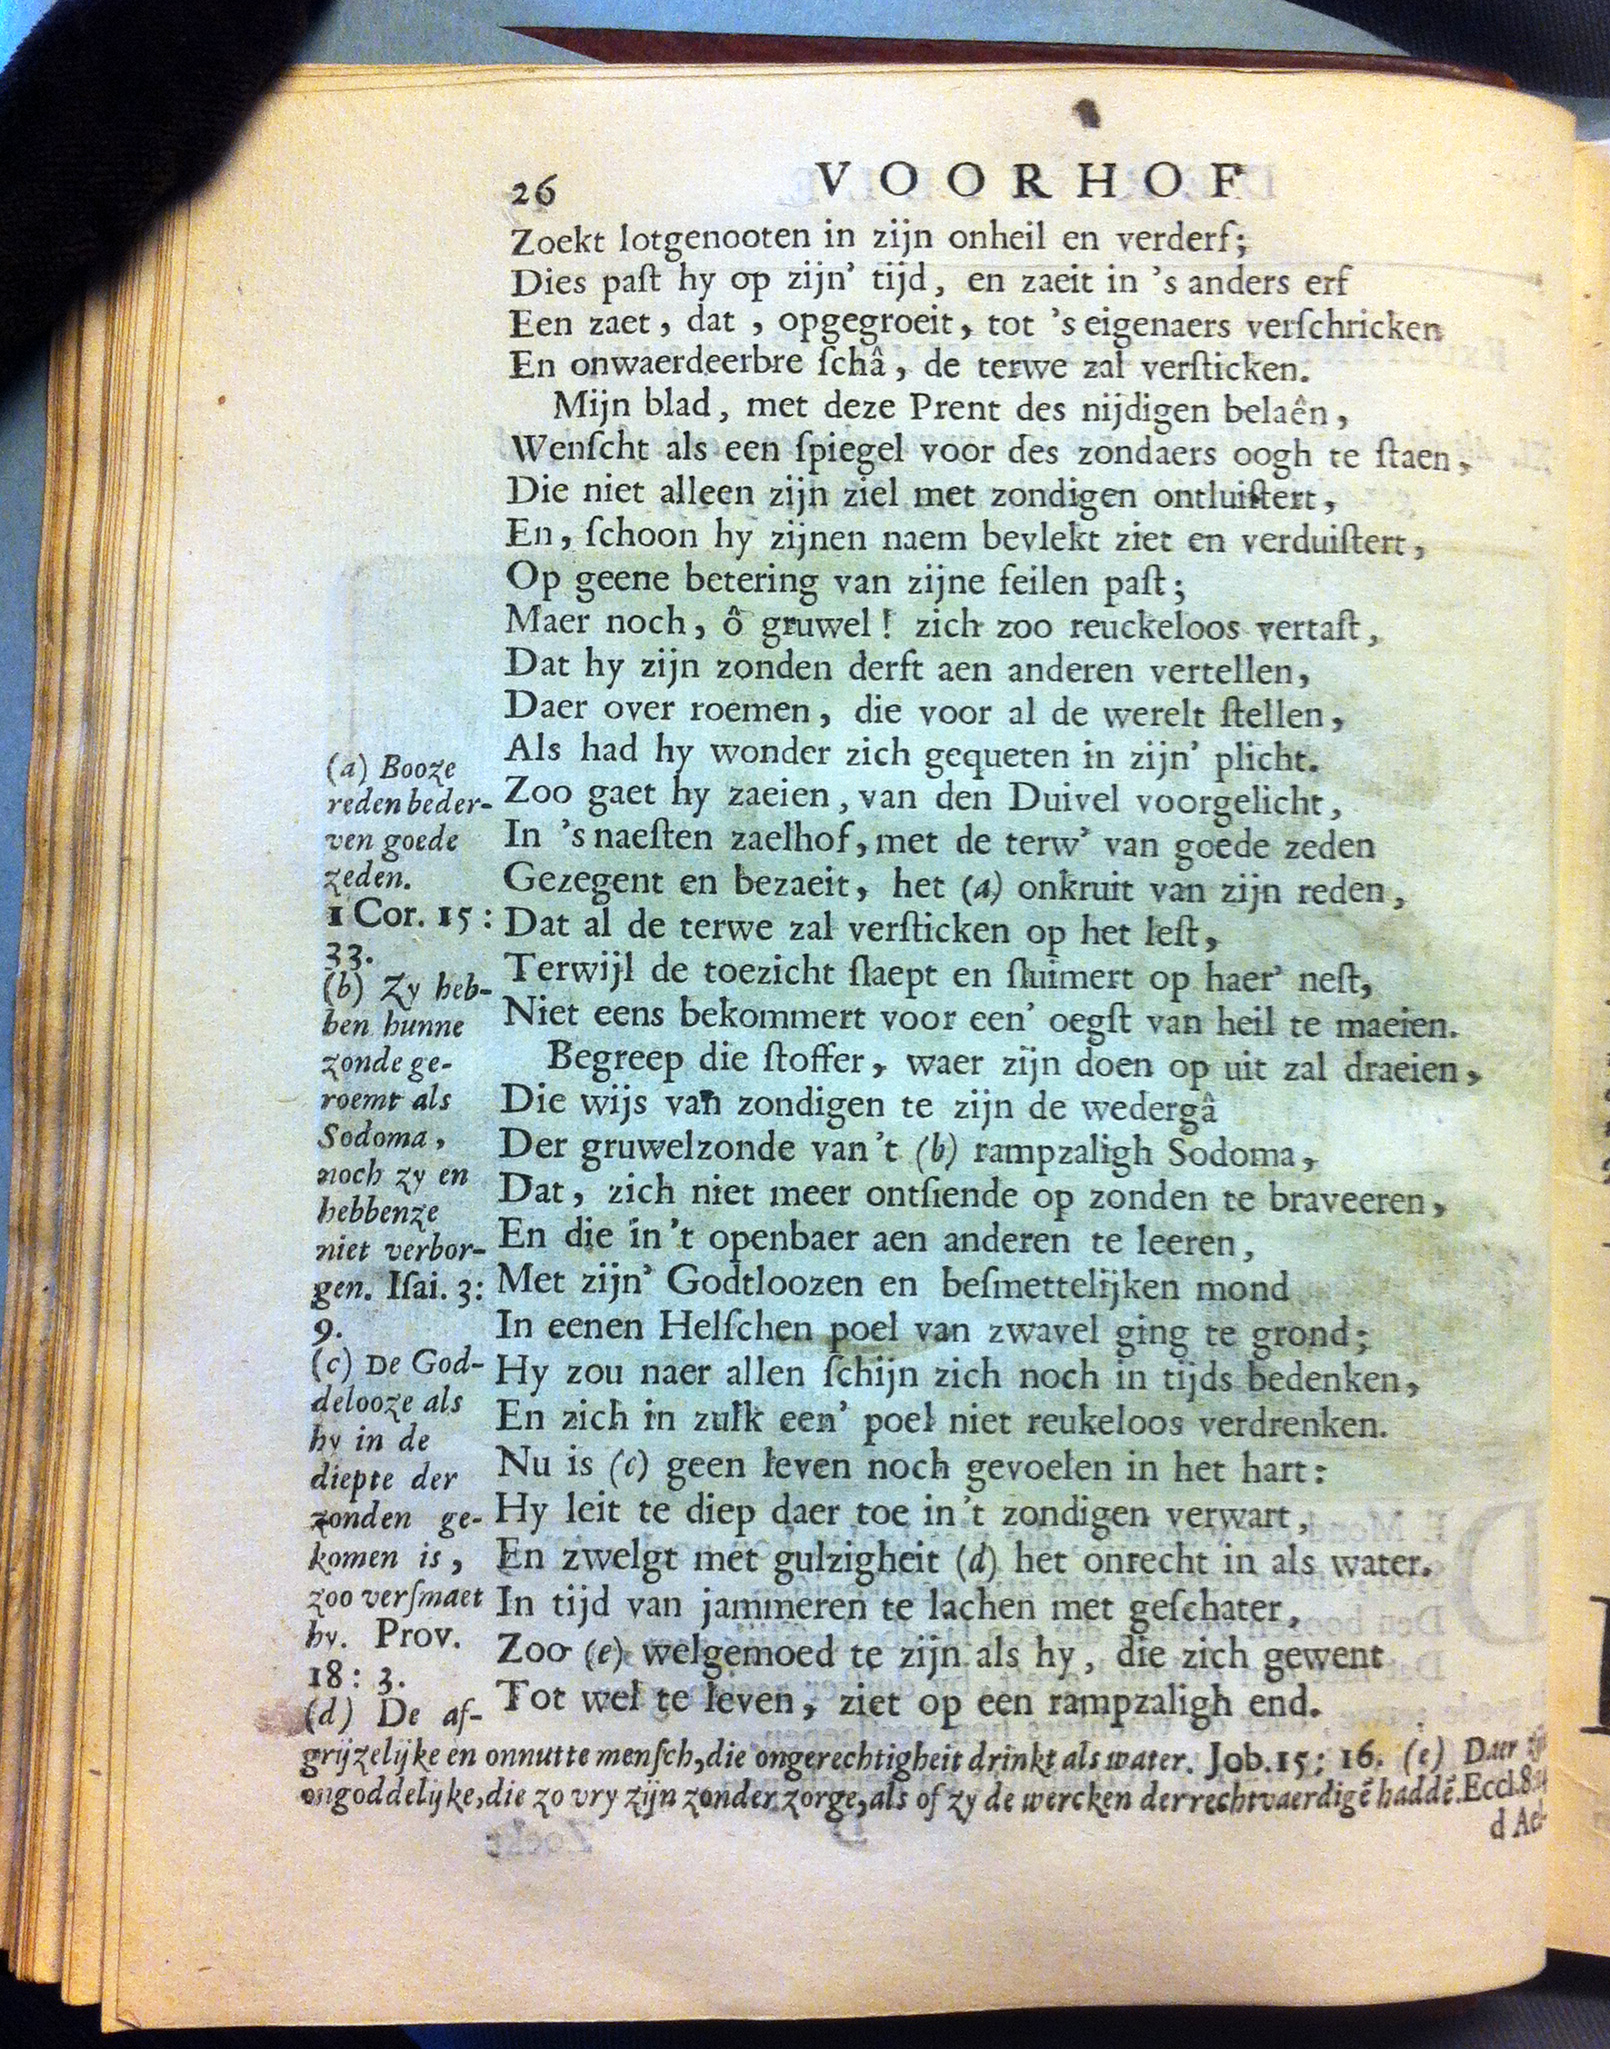 26 VOORHOF
Zoekt lotgenooten in zijn onheil en verderf;
Dies paſt hy op zijn' tijd, en zaeit in 's anders erf
Een zaet, dat, opgegroeit, tot 's eigenaers verſchricken
En onwaerdeerbre ſchâ, de terwe zal verſticken.
Mijn blad, met deze Prent des nijdigen belaên,
Wenſcht als een ſpiegel voor des zondaers oogh te ſtaen,
Die niet alleen zijn ziel met zondigen ontluiſtert,
En, ſchoon hy zijnen naem bevlekt ziet en verduiſtert,
Op geene betering van zijne feilen paſt;
Maer noch, ô gruwel! zich zoo reuckeloos vertaſt,
Dat hy zijn zonden derft aen anderen vertellen,
Daer over roemen, die voor al de werelt ſtellen,
Als had hy wonder zich gequeten in zijn' plicht.
Zoo gaet hy zaeien, van den Duivel voorgelicht,
In 's naeſten zaelhof, met de terw' van goede zeden
Gezegent en bezaeit, het (a) onkruit van zijn reden,
Dat al de terwe zal verſticken op het leſt,
Terwijl de toezicht ſlaept en ſluimert op haer' neſt,
Niet eens bekommert voor een' oegſt van heil te maeien.
Begreep die ſtoffer, waer zijn doen op uit zal draeien,
Die wijs van zondigen te zijn de wedergâ
Der gruwelzonde van 't (b) rampzaligh Sodoma,
Dat, zich niet meer ontſiende op zonden te braveeren,
En die in 't openbaer aen anderen te leeren,
Met zijn' Godtloozen en beſmettelijken mond
In eenen Helſchen poel van zwavel ging te grond;
Hy zou naer allen ſchijn zich noch in tijds bedenken,
En zich in zulk een' poel niet reukeloos verdrenken.
Nu is (c) geen leven noch gevoelen in het hart:
Hy leit te diep daer toe in 't zondigen verwart,
En zwelgt met gulzigheit (d) het onrecht in als water.
In tijd van jammeren te lachen met geſchater,
Zoo (e) welgemoed te zijn als hy, die zich gewent
Tot wel te leven, ziet op een rampzaligh end.
(a) Booze
reden beder-
ven goede
zeden.
1 Cor. 15:
33.
(b) Zy heb-
ben hunne
zonde ge-
roemt als
Sodoma,
noch zy en
hebbenze
niet verbor-
gen. Iſai. 3:
9.
(c) De God-
delooze als
hy in de
diepte der
zonden ge-
komen is,
zoo verſmaet
hy. Prov.
18: 3.
(d) De af-
grijzelijke en onnutte menſch, die ongerechtigheit drinkt als water. Job. 15: 16. (e) Daer zijn
ongoddelijke, die zo vry zijn zonder zorge, als of zy de wercken der rechtvaerdigẽ haddẽ. Eccl. 8:14
d Ael-